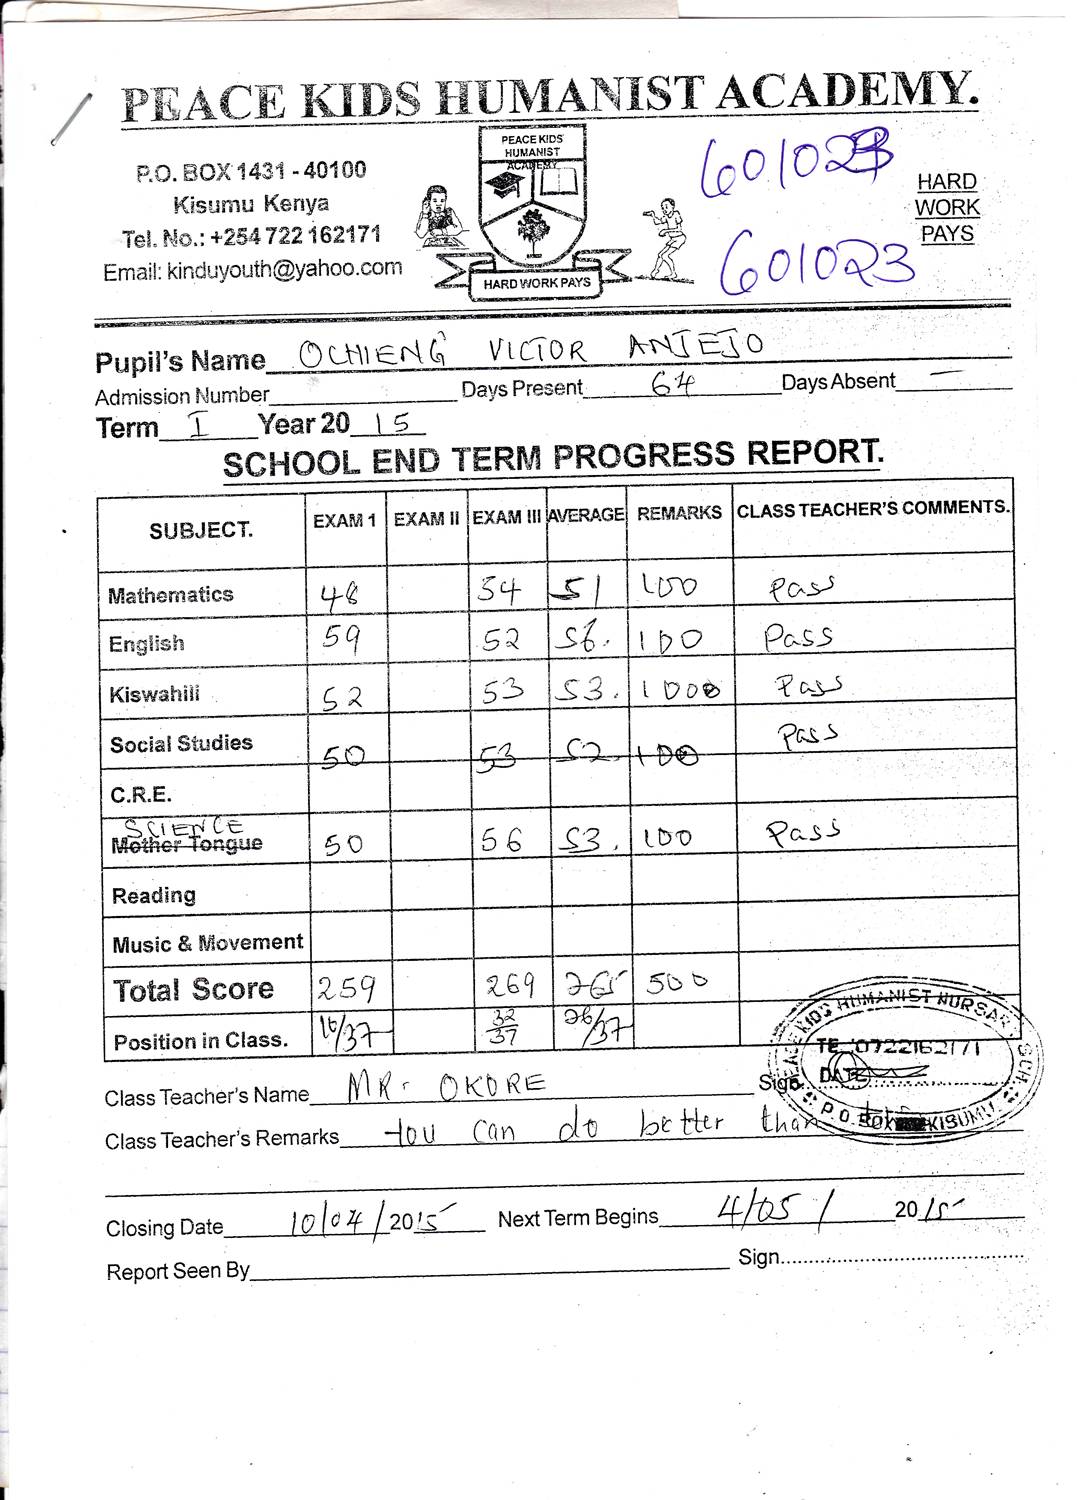 PEACE KIDS HUMANIST ACADEMY.
P.O. BOX 1431 - 40100
Kisumu Kenya
Tel. No.: +254 722 162171
Email: kinduyouth@yahoo.com
PEACE KIDS
HUMANIST
ACADEMY
HARD WORK PAYS
601023
601023
HARD
WORK
PAYS
Pupil's Name OCHIENG VICTOR ANJEJO
Admission Number Days Present 64 Days Absent —
Term I Year 20 15
SCHOOL END TERM PROGRESS REPORT.
SUBJECT. EXAM 1 EXAM II EXAM III AVERAGE REMARKS CLASS TEACHER'S COMMENTS.
Mathematics 48 54 51 100 Pass
English 59 52 56. 100 Pass
Kiswahili 52 53 53. 100 Pass
Social Studies 50 53 52. 100 Pass
C.R.E.
SCIENCE
Mother Tongue 50 56 53. 100 Pass
Reading
Music & Movement
Total Score 259 269 265 500
Position in Class. 16/37 32/37 26/37
Class Teacher's Name MR. OKORE Sign.
Class Teacher's Remarks You can do better than
KIDS HUMANIST NURSARY SCH.
TEL 0722162171
DATE
P.O. BOX KISUMU
Closing Date 10/04/2015 Next Term Begins 4/05/ 2015
Report Seen By Sign